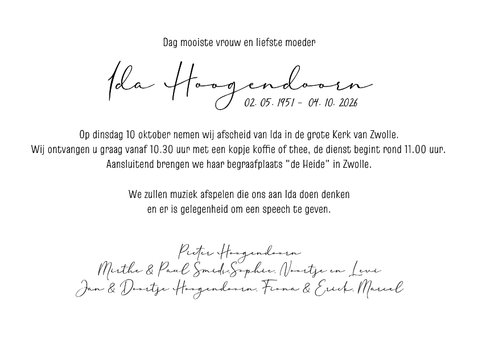 Dag mooiste vrouw en liefste moeder
Ida Hoogendoorn
02. 05. 1951 - 04. 10. 2026
Op dinsdag 10 oktober nemen wij afscheid van Ida in de grote Kerk van Zwolle.
Wij ontvangen u graag vanaf 10.30 uur met een kopje koffie of thee, de dienst begint rond 11.00 uur.
Aansluitend brengen we haar begraafplaats "de Heide" in Zwolle.
We zullen muziek afspelen die ons aan Ida doen denken
en er is gelegenheid om een speech te geven.
Pieter Hoogendoorn
Mirthe & Paul Smid-Sophie, Noortje en Levi
Jan & Doortje Hoogendoorn, Fiona & Erick, Marcel